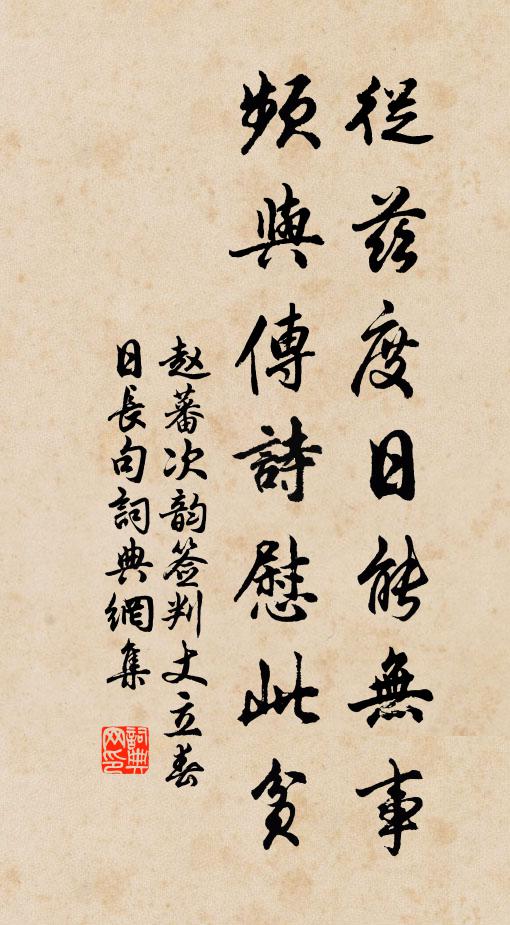 從茲度日能無事
頻與傳詩慰此貧
赵蕃次韵签判丈立春
日長句詞典網集
詞典网印